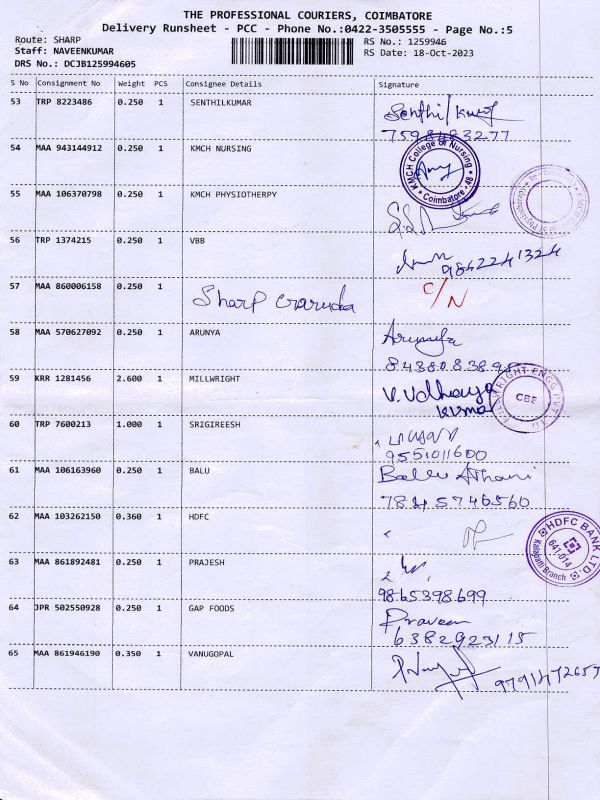 THE PROFESSIONAL COURIERS, COIMBATORE
Delivery Runsheet - PCC - Phone No.:0422-3505555 - Page No.:5
Route: SHARP
RS No.: 1259946
Staff: NAVEENKUMAR
RS Date: 18-Oct-2023
DRS No.: DCJB125994605
S No Consignment No Weight PCS Consignee Details Signature
53 TRP 8223486 0.250 1 SENTHILKUMAR Senthilkumar
54 MAA 943144912 0.250 1 KMCH NURSING
KMCH College of Nursing
Coimbatore - 48
55 MAA 106370798 0.250 1 KMCH PHYSIOTHERPY
56 TRP 1374215 0.250 1 VBB
9842241324
57 MAA 860006158 0.250 1 Sharp Craruda C/N
58 MAA 570627092 0.250 1 ARUNYA
59 KRR 1281456 2.600 1 MILLWRIGHT V. Udhaya
kumar
MILLWRIGHT ENGG PVT LTD
CBE
60 TRP 7600213 1.000 1 SRIGIREESH
9551011600
61 MAA 106163960 0.250 1 BALU
7845746560
62 MAA 103262150 0.360 1 HDFC
HDFC BANK LTD.
641-014
Kalapatti Branch
63 MAA 861892481 0.250 1 PRAJESH
9865398699
64 JPR 502550928 0.250 1 GAP FOODS Praveen
6382923115
65 MAA 861946190 0.350 1 VANUGOPAL
9791472657